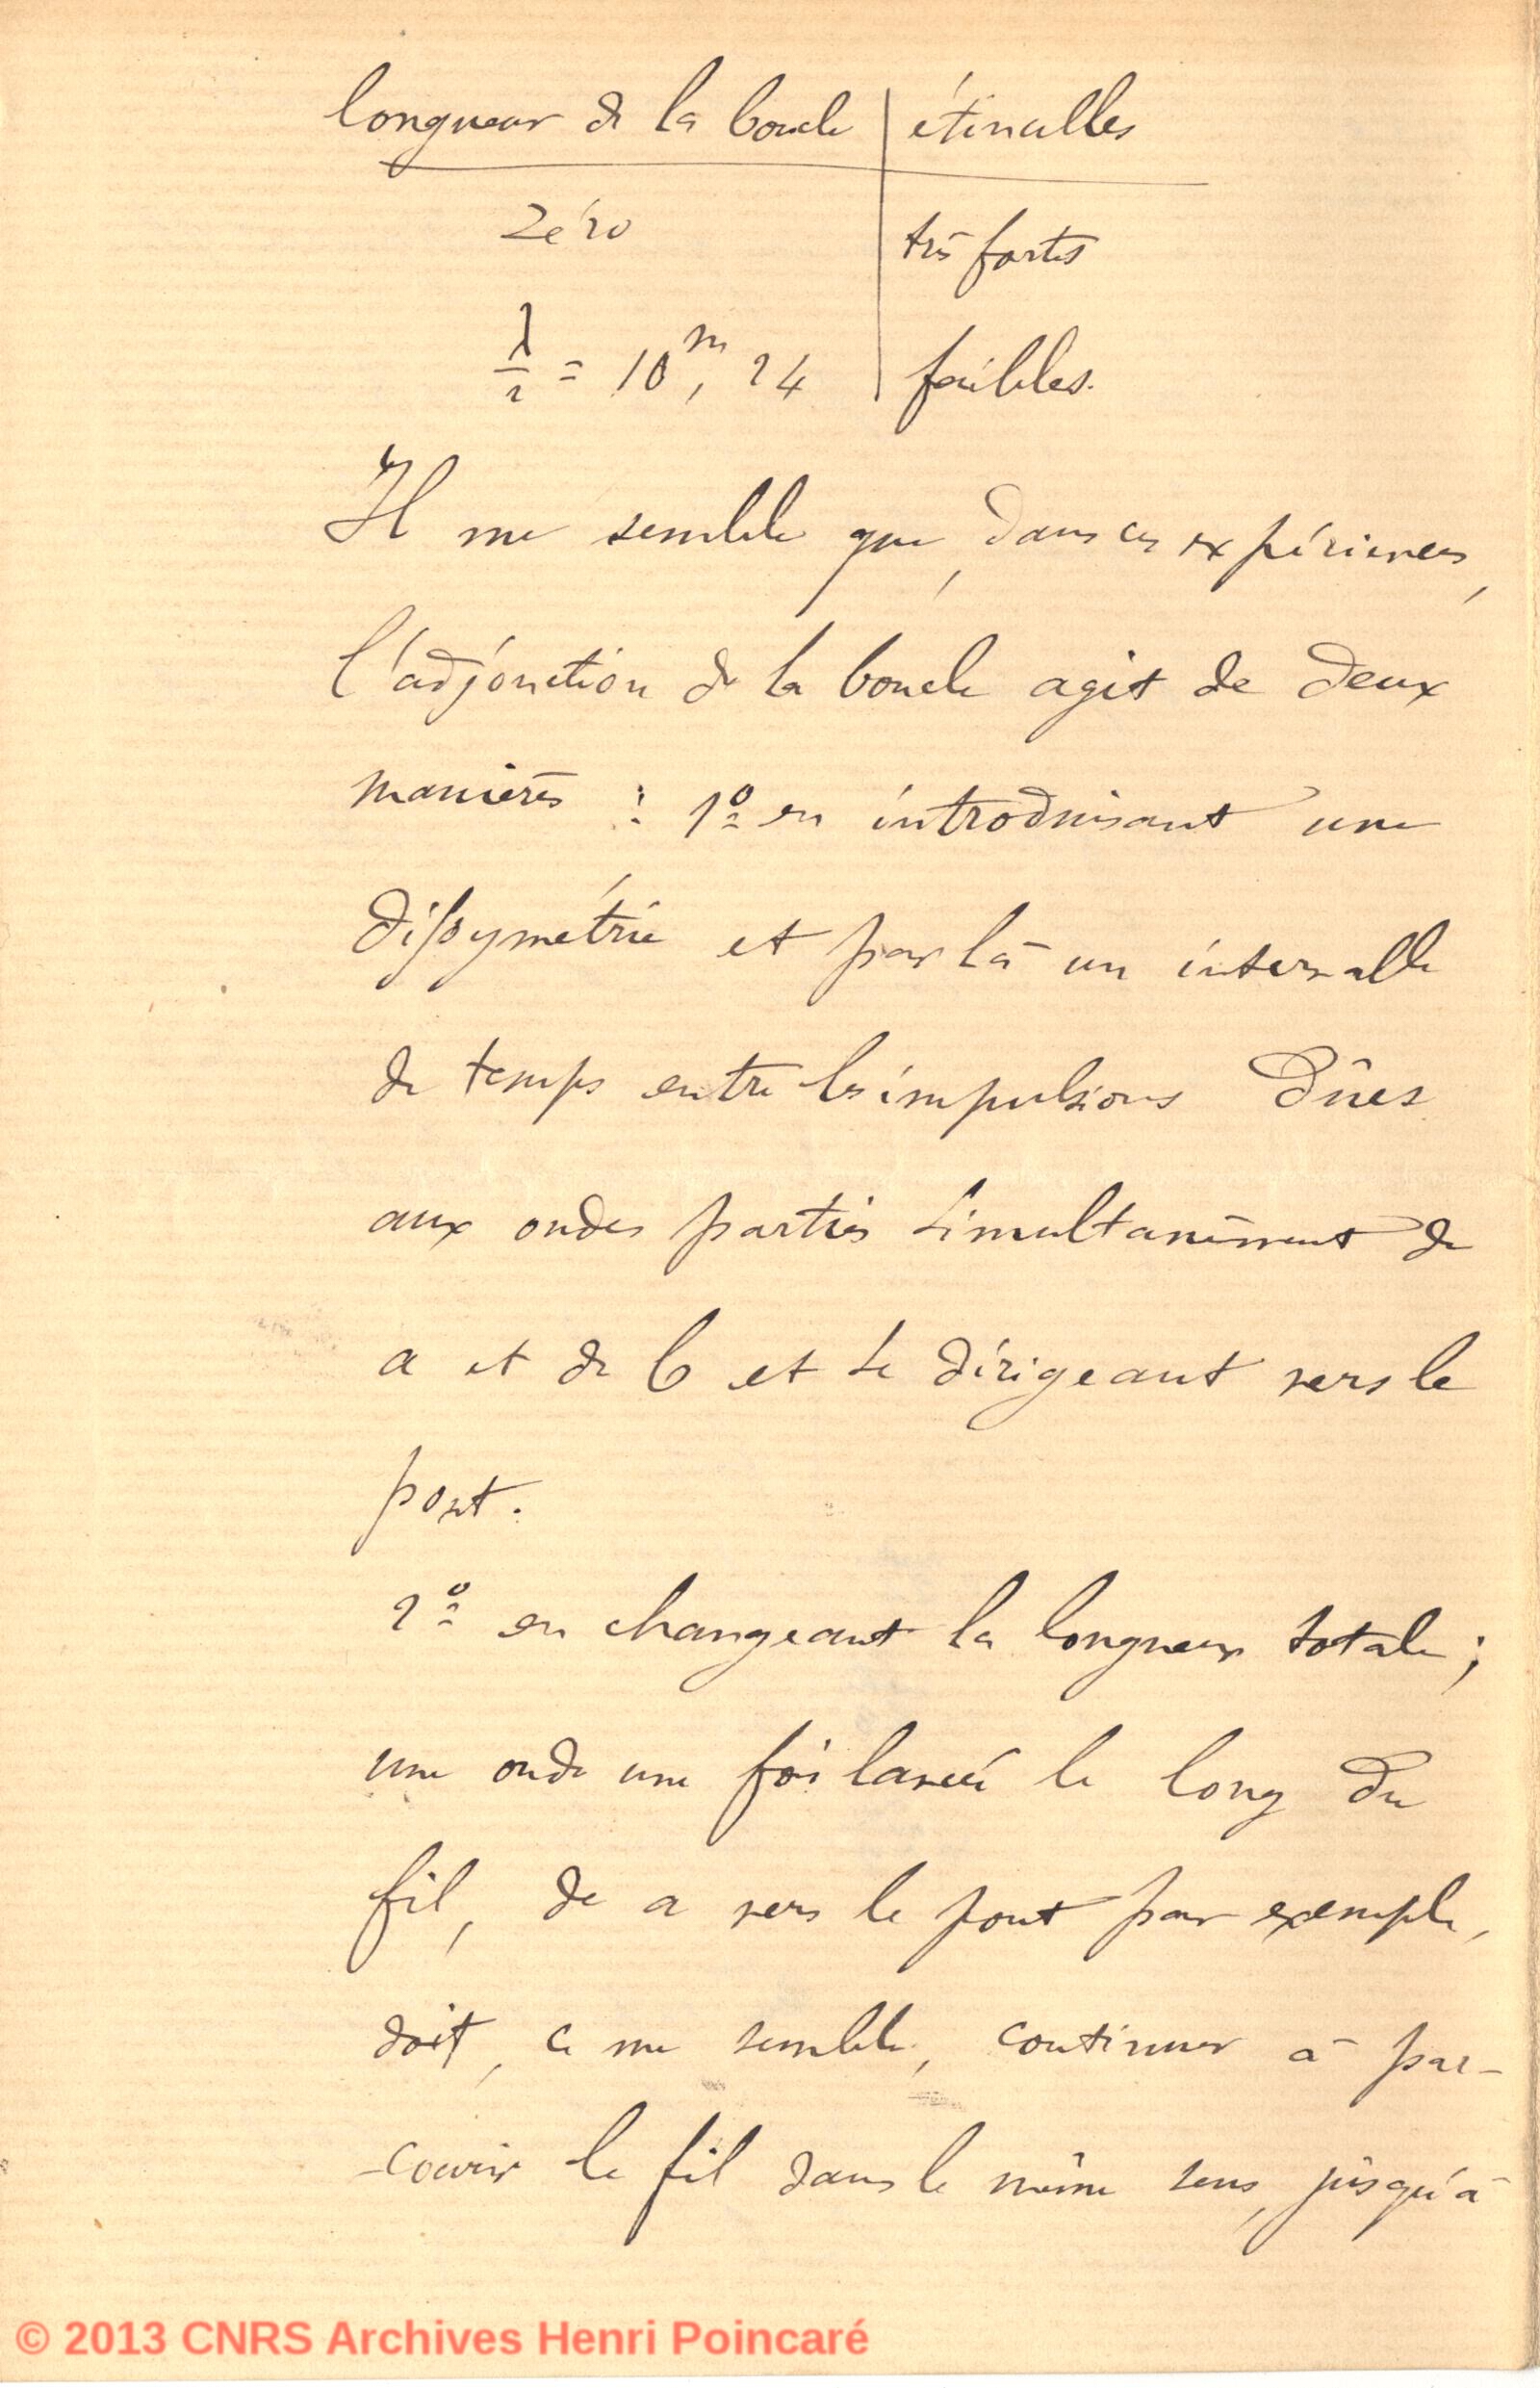 longueur de la boucle | étincelles
zéro | très fortes
λ/2 = 10m, 24 | faibles.
Il me semble que, dans ces expériences,
l'adjonction de la boucle agit de deux
manières : 1º en introduisant une
dissymétrie et par là un intervalle
de temps entre les impulsions dûes
aux ondes parties simultanément de
a et de b et se dirigeant vers le
pont.
2º en changeant la longueur totale ;
une onde une fois lancée le long du
fil, de a vers le pont par exemple,
doit, ce me semble, continuer à par-
-courir le fil dans le même sens, jusqu'à
© 2013 CNRS Archives Henri Poincaré